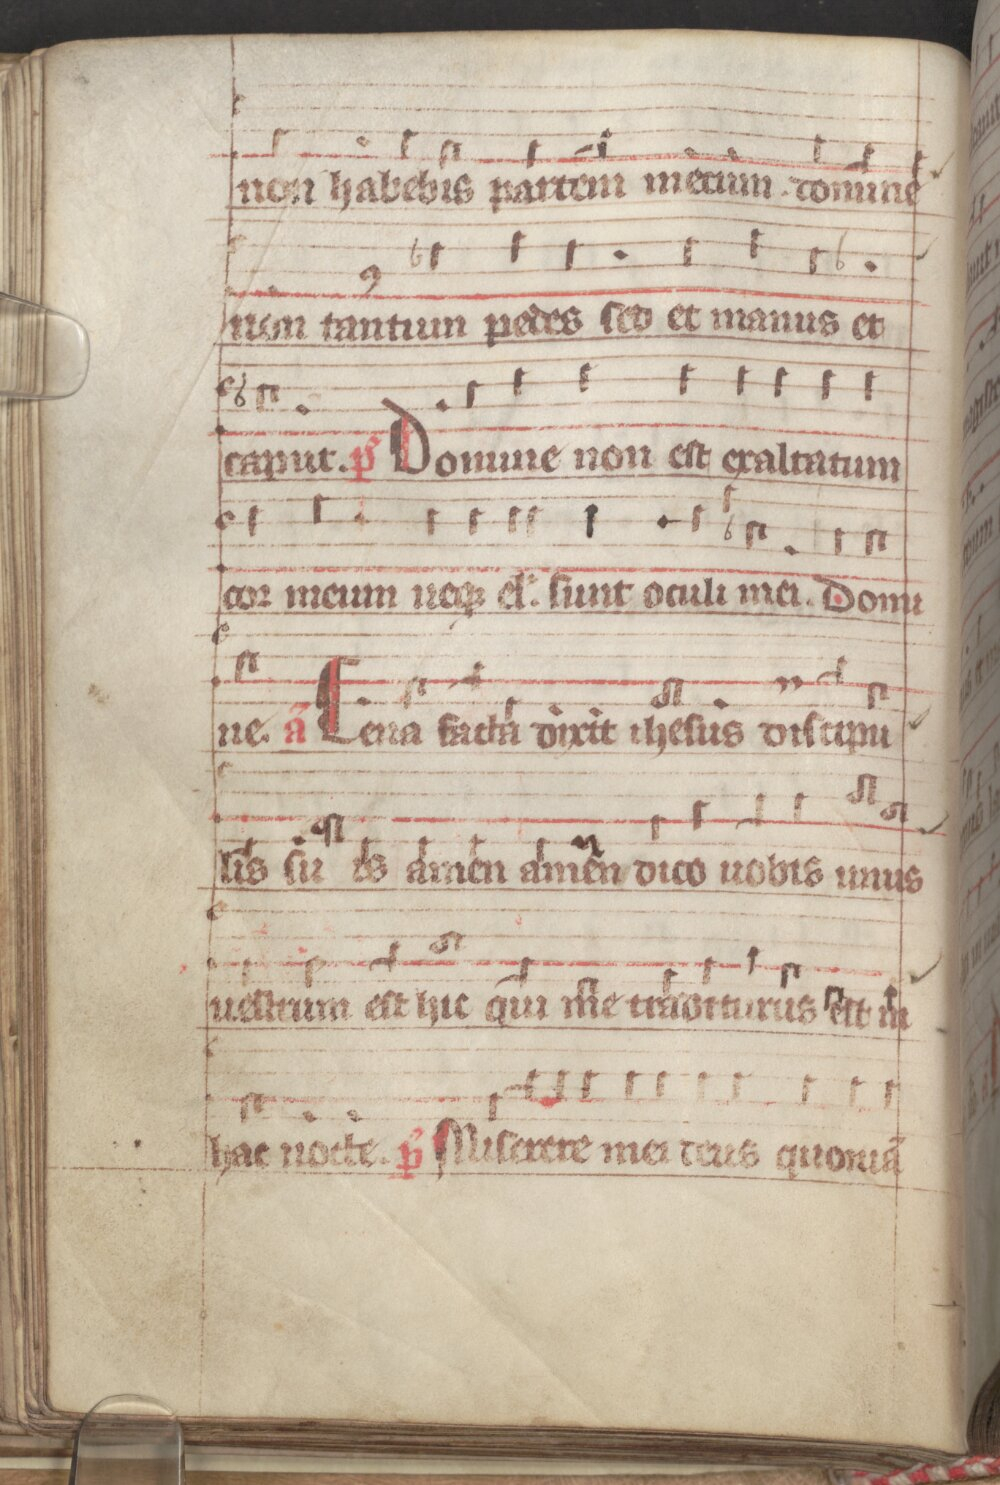 non habebis partem mecum. domine
non tantum pedes sed et manus et
caput. ps Domine non est exaltatum
cor meum neqꝫ el. sunt oculi mei. Domi
ne. añ Cena facta dixit ihesus discipu
lis su is amen amen dico uobis unus
uestrum est hic qui me traditurus est in
hac nocte. ps Miserere mei deus quoniā